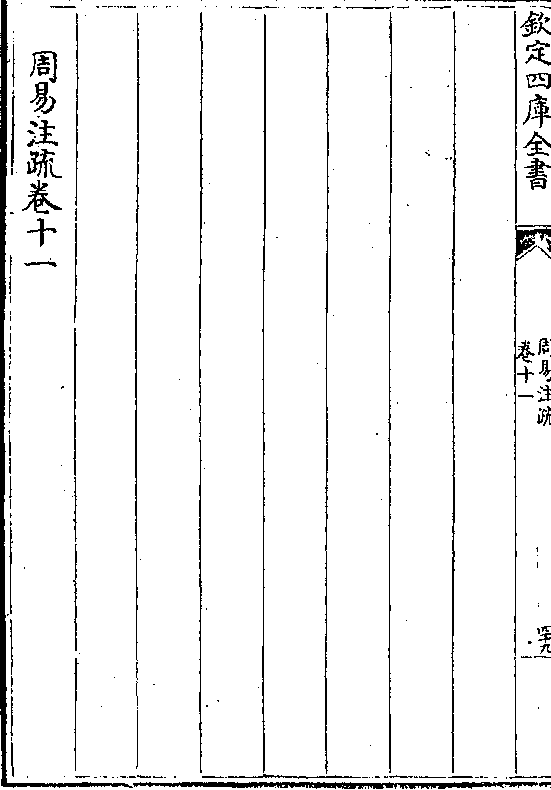 欽定四庫全書
周易注疏
卷十一
四十九
周易注疏卷十一